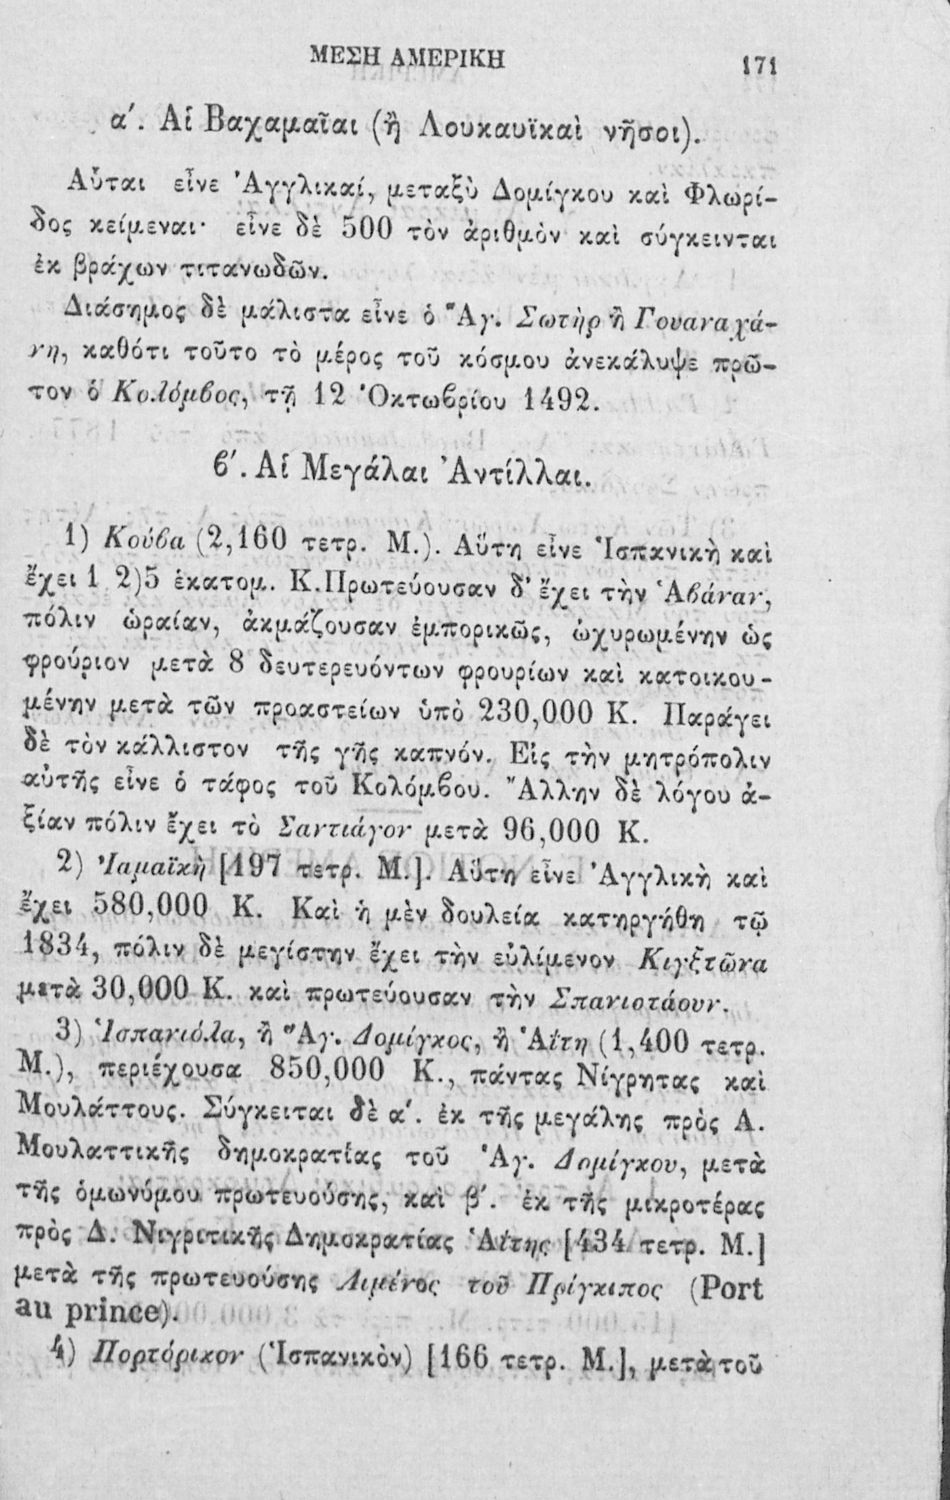 ΜΕΣΗ ΑΜΕΡΙΚΗ 171
α′. Αἱ Βαχαμαῖαι (ἢ Λουκαυϊκαὶ νῆσοι).
Αὗται εἶνε Ἀγγλικαί, μεταξὺ Δομίγκου καὶ Φλωρί-
δος κείμεναι· εἶνε δὲ 500 τὸν ἀριθμὸν καὶ σύγκεινται
ἐκ βράχων τιτανωδῶν.
Διάσημος δὲ μάλιστα εἶνε ὁ Ἅγ. Σωτὴρ ἢ Γουαναχά-
νη, καθότι τοῦτο τὸ μέρος τοῦ κόσμου ἀνεκάλυψε πρῶ-
τον ὁ Κολόμβος, τῇ 12 Ὀκτωβρίου 1492.
ϐ′. Αἱ Μεγάλαι Ἀντίλλαι.
1) Κούϐα (2,160 τετρ. Μ.). Αὕτη εἶνε Ἱσπανικὴ καὶ
ἔχει 1 2)5 ἑκατομ. Κ. Πρωτεύουσαν δ' ἔχει τὴν Ἁϐάναν,
πόλιν ὡραίαν, ἀκμάζουσαν ἐμπορικῶς, ὠχυρωμένην ὡς
φρούριον μετὰ 8 δευτερευόντων φρουρίων καὶ κατοικου-
μένην μετὰ τῶν προαστείων ὑπὸ 230,000 Κ. Παράγει
δὲ τὸν κάλλιστον τῆς γῆς καπνόν. Εἰς τὴν μητρόπολιν
αὐτῆς εἶνε ὁ τάφος τοῦ Κολόμϐου. Ἄλλην δὲ λόγου ἀ-
ξίαν πόλιν ἔχει τὸ Σαντιάγον μετὰ 96,000 Κ.
2) Ἰαμαϊκὴ [197 τετρ. Μ.]. Αὕτη εἶνε Ἀγγλικὴ καὶ
ἔχει 580,000 Κ. Καὶ ἡ μὲν δουλεία κατηργήθη τῷ
1834, πόλιν δὲ μεγίστην ἔχει τὴν εὐλίμενον Κιγξτῶνα
μετὰ 30,000 Κ. καὶ πρωτεύουσαν τὴν Σπανιοτάουν.
3) Ἱσπανιόλα, ἢ Ἅγ. Δομίγκος, ἢ Ἁΐτη (1,400 τετρ.
Μ.), περιέχουσα 850,000 Κ., πάντας Νίγρητας καὶ
Μουλάττους. Σύγκειται δὲ α′. ἐκ τῆς μεγάλης πρὸς Α.
Μουλαττικῆς δημοκρατίας τοῦ Ἁγ. Δομίγκου, μετὰ
τῆς ὁμωνύμου πρωτευούσης, καὶ β′. ἐκ τῆς μικροτέρας
πρὸς Δ. Νιγριτικῆς Δημοκρατίας Ἁΐτης [434 τετρ. Μ.]
μετὰ τῆς πρωτευούσης Λιμένος τοῦ Πρίγκιπος (Port
au prince).
4) Πορτόρικον (Ἱσπανικὸν) [166 τετρ. Μ.], μετὰ τοῦ